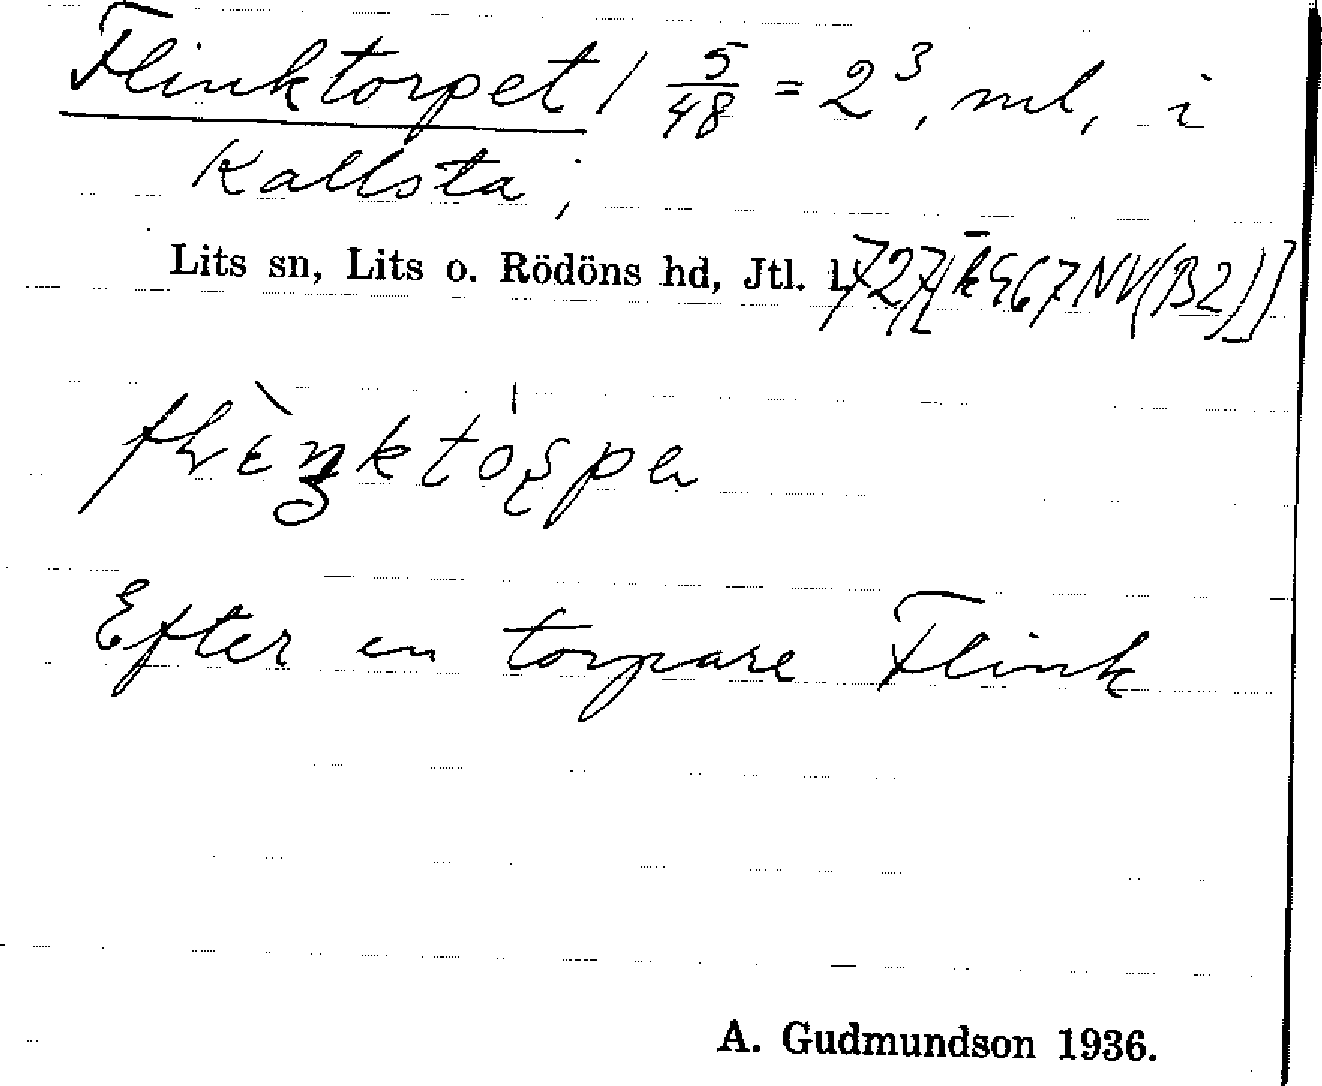 Flinktorpet / 5/48 = 2³, ml, i
Kallsta;
Lits sn, Lits o. Rödöns hd, Jtl. l.
Efter en torpare Flink
A. Gudmundson 1936.